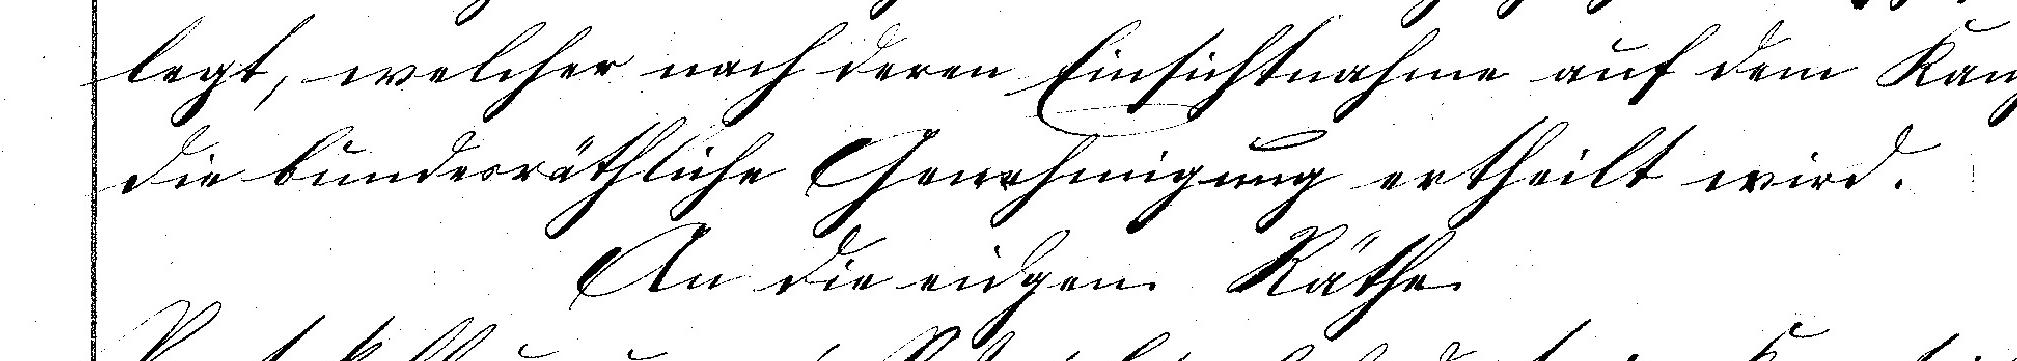 legt, welcher nach deren Einsichtnahme auf dem Kanz
die bundesräthliche Genehmigung ertheilt wird.
An die eidgen. Räthe.